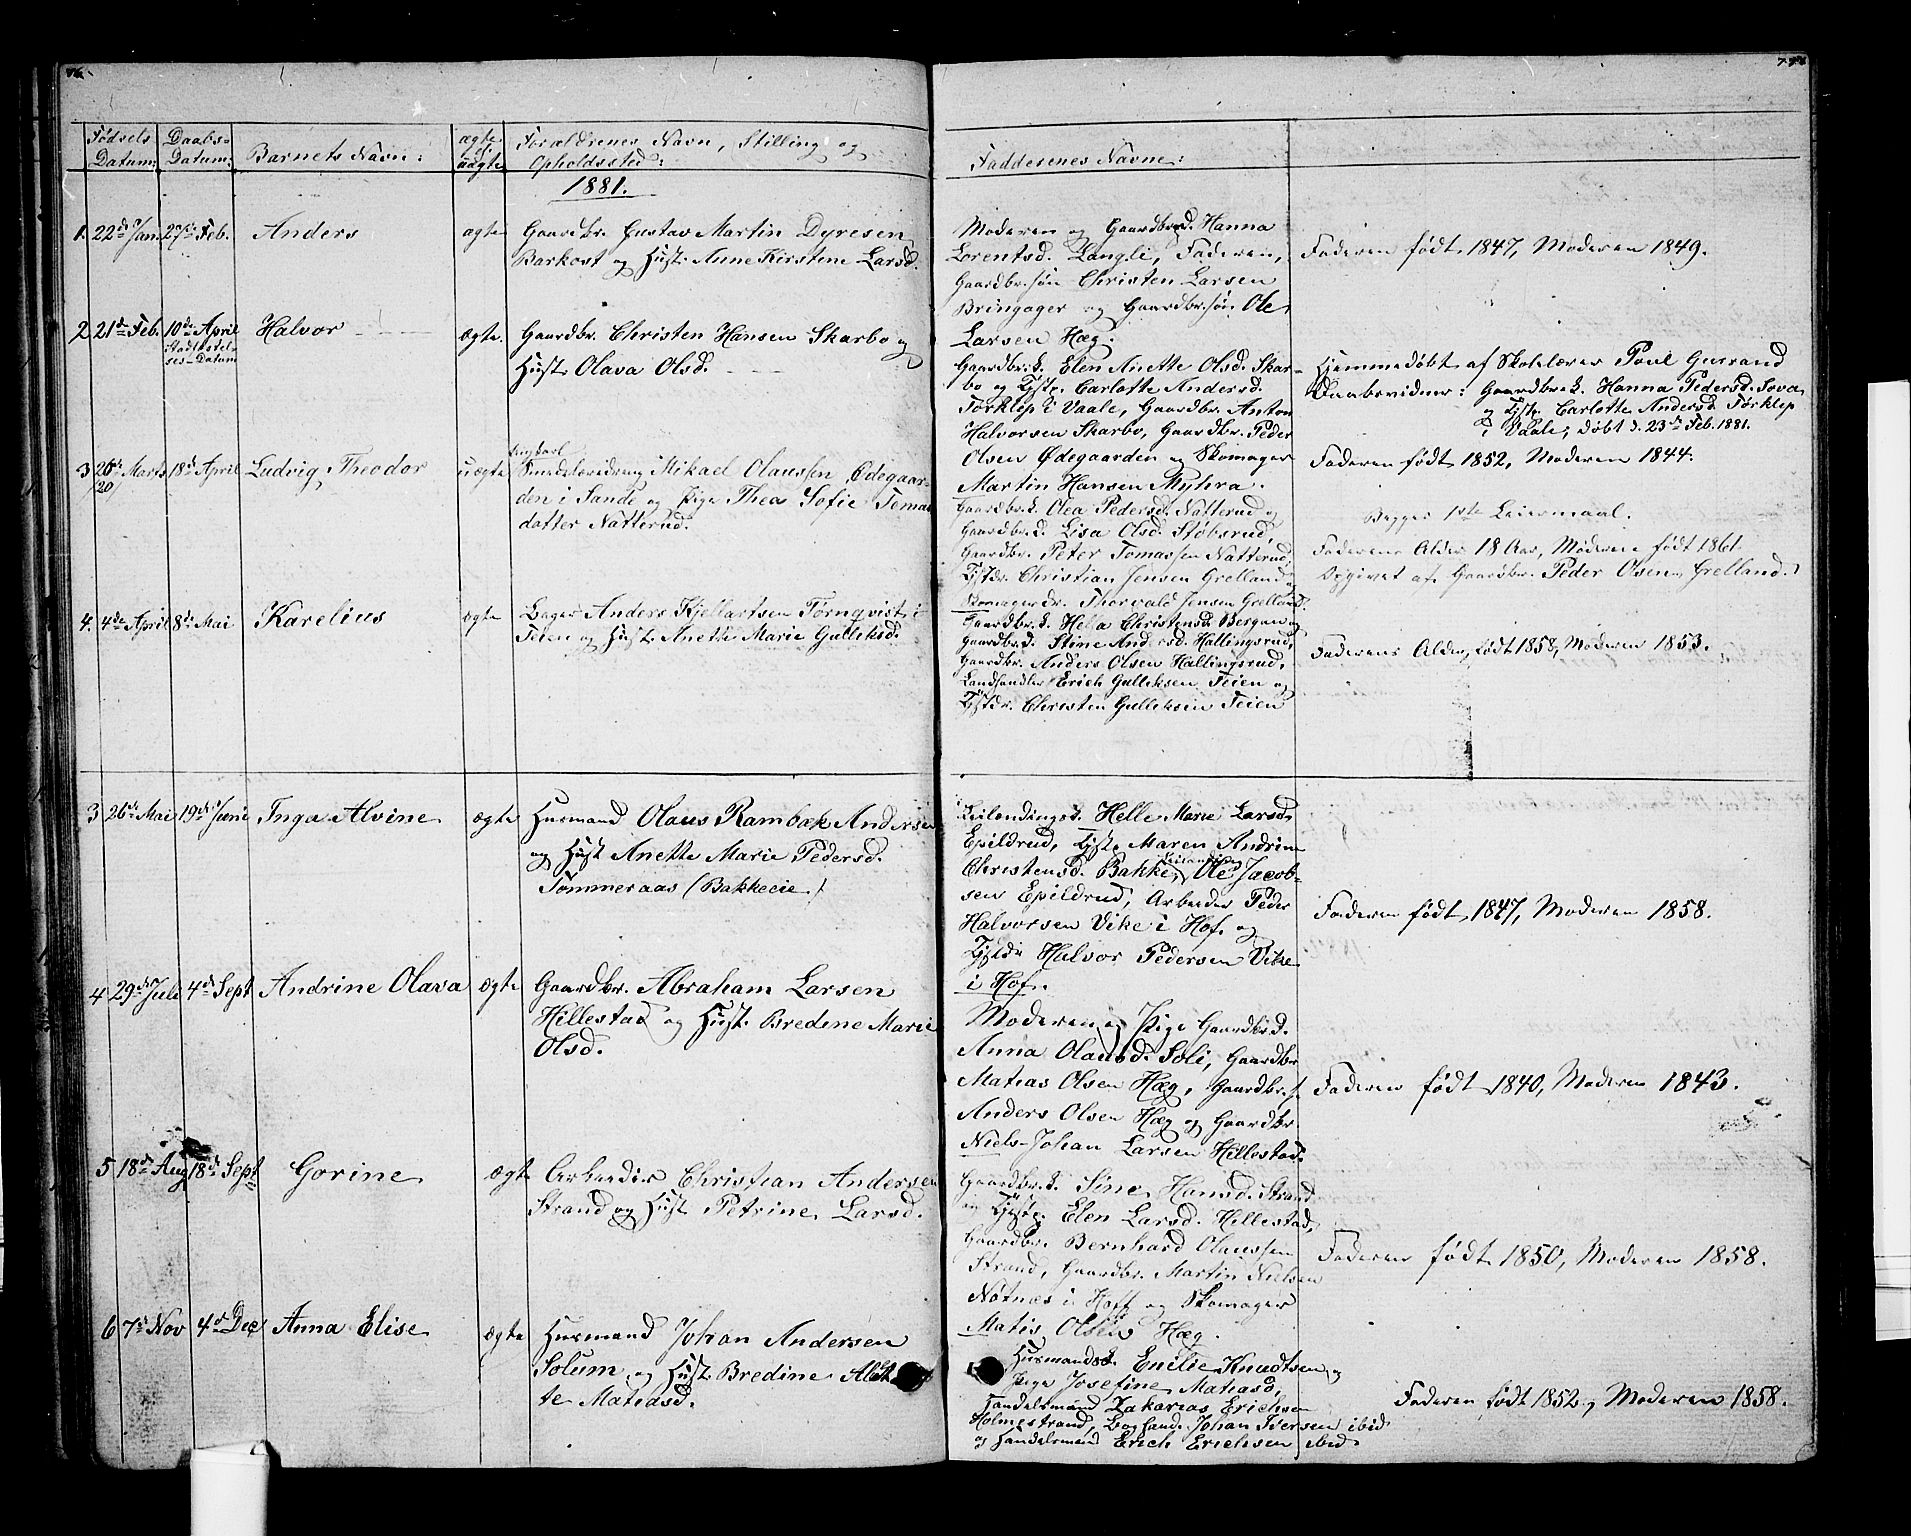 76.
Fødsels Datum: Daabs-Datum: Barnets Navn: ægte el. uægte Forældrenes Navn, Stilling og Opholdssted:
1881.
1. 22de Jan. 27de Feb. Anders ægte Gaardbr. Gustav Martin Dyresen
Barkost og Hust. Anne Kirstine Larsd.
2 21de Feb. 10de April Halvor ægte. Gaardbr. Christen Hansen Skarbo og
Stadfæstel-
ses-Datum
Hust. Olava Olsd.
3 26de Marts 18de April Ludvig Theodor uægte Ungkarl
/20/ Mikael Olaussen Ødegaar-
den i Sande og Pige Thea Sofie Tomas
datter Natterud.
4. 4de April 8de Mai Karelius ægte Bager Anders Kjellartsen Tørnqvist i
Teien og Hust. Anette Marie Gulliksd.
3 26de Mai 19de Juni Inga Alvine ægte Husmand Olaus Rambæk Andersen
og Hust Anette Marie Pedersd.
Tømmeraas (Bakkeeie)
4 29de Juli 4de Sept Andrine Olava ægte Gaardbr. Abraham Larsen
Hillestad og Hust. Bredine Marie
Olsd.
5 18de Aug 18de Sept Gorine ægte Arbeider Christian Andersen
Strand og Hust. Petrine Larsd.
6 7de Nov 4de Dec Anna Elise ægte Husmand Johan Andersen
Solum og Hust. Bredine Alet-
te Matiasd.
Faddernes Navne:
Moderen og Gaardbrd. Hanna
Lorentsd. Langli, Faderen,
Gaardbr.søn Christen Larsen
Bringager og Gaardbr.søn Ole
Larsen Hæg.
Faderen født 1847, Moderen 1849.
Gaardbr.k. Elen Anette Olsd. Skar-
bo og Tjstp. Carlotte Andersd.
Torklep i Vaale, Gaardbr. Anton
Halvorsen Skarbo, Gaardbr. Peder
Olsen Ødegaarden og Skomager
Martin Hansen Myhra.
Hjemmedøbt af Skolelærer Poul Gusrand
Daabsvidner: Gaardbr.k. Hanna Pedersd. Sova
og Tjstp. Carlotte Andersd. Torklep
i Vaale, døbt d. 23de Feb. 1881.
Faderen født 1852, Moderen 1844.
Gaardbr.k. Olea Pedersd. Natterud og
Gaardbr.d. Lisa Olsd. Støbsrud,
Gaardbr. Peter Tomassen Natterud,
Tjstdr. Christian Jensen Grelland og
Skomagerdr. Thorvald Jensen Grelland.
Begges 1ste Leiermaal.
Faderens Alder 18 Aar, Moderen født 1861.
Opgivet af Gaardbr. Peder Olsen Grelland.
Gaardbr.k. Christensd. Bergan og
Gaardbr.d. Stine And sd. Hallingsrud,
Gaardbr. Anders Olsen Hallingsrud,
Landhandler Erich Gulliksen Teien og
Tjstdr. Christen Gulliksen Teien
Faderens Alder, født 1858, Moderen 1853.
Leilendingsk. Helle Marie Larsd.
Epildrud, Tjstp. Maren Andrine
Christensd. Bakke, Leilending Ole Jacob-
sen Epildrud, Arbeider Peder
Halvorsen Vike i Hof. og
Tjstdr Halvor Pedersen Vike
i Hof.
Faderen født, 1847, Moderen 1858.
Moderen og Pige Gaardbr.d.
Anna Olausd. Soli, Gaardbr
Matias Olsen Hæg, Gaardbr.s.
Anders Olsen Hæg og Gaardbr
Niels-Johan Larsen Hillestad.
Faderen født 1840, Moderen 1843.
Gaardbr.k. Sine Hansd. Strand
og Tjstp. Elen Larsd. Hillestad,
Gaardbr. Bernhard Olaussen
Strand, Gaardbr. Martin Nielsen
Nøtnæs i Hoff og Skomager
Matis Olsen Hæg.
Faderen født 1850, Moderen 1858.
Husmandsk. Emilie Knudtsen og
Pige Josefine Matiasd,
Handelsmand Zakarias Erichsen
Holmestrand, Boghand. Johan Iversen ibid
og Handelsmand Erich Erichsen ibid.
Faderen født 1852, Moderen 1858.